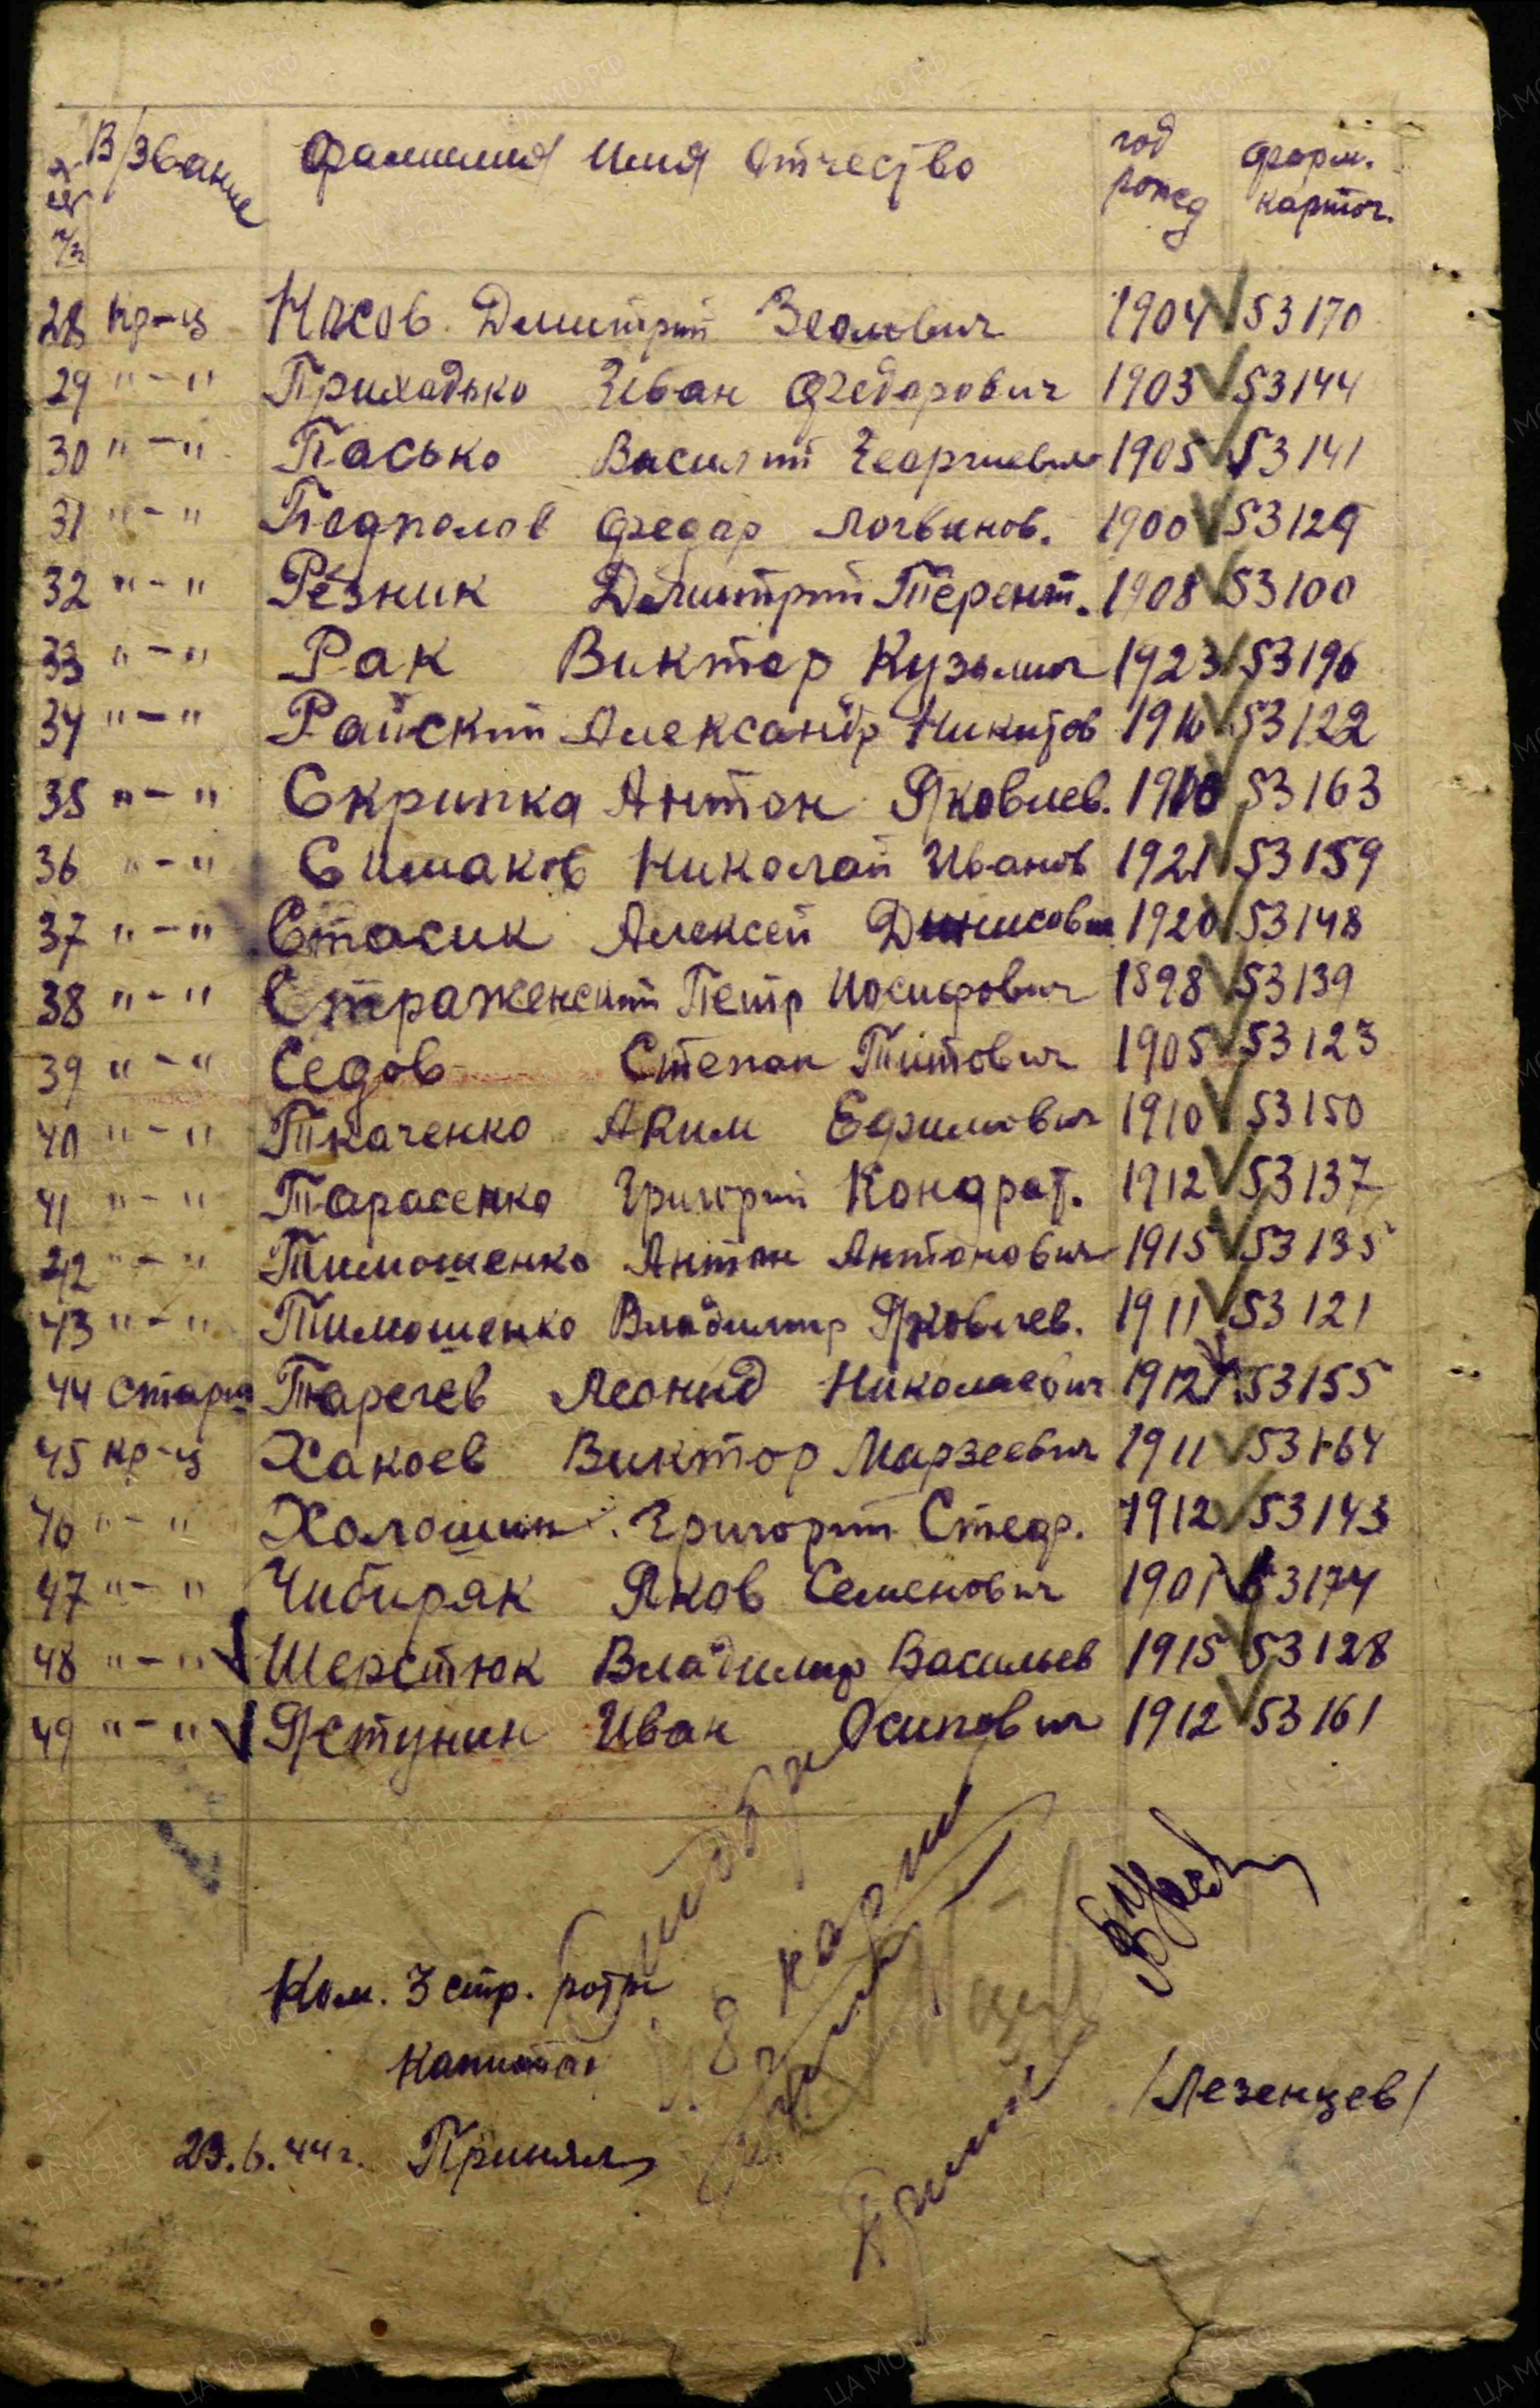 №№ п/п В/звание Фамилия Имя Отчество год рожд форм. карточ.
28 кр-ц Носов Дмитрий Зеомович 1904 53170
29 "-" Приходько Иван Федорович 1903 53144
30 "-" Пасько Василий Георгиевич 1905 53141
31 "-" Подполов Федор Логвинов. 1900 53129
32 "-" Резник Дмитрий Терент. 1908 53100
33 "-" Рак Виктор Кузьмич 1923 53196
34 "-" Райский Александр Никитов 1910 53122
35 "-" Скрипка Антон Яковлев. 1900 53163
36 "-" Симаков Николай Иванов 1921 53159
37 "-" Стасик Алексей Денисович 1920 53148
38 "-" Страженский Петр Иосифович 1898 53139
39 "-" Седов Степан Титович 1905 53123
40 "-" Ткаченко Аким Ефимович 1910 53150
41 "-" Тарасенко Григорий Кондрат. 1912 53137
42 "-" Тимошенко Антон Антонович 1915 53135
43 "-" Тимошенко Владимир Яковлев. 1911 53121
44 Старш Тюречев Леонид Николаевич 1912 53155
45 кр-ц Хакоев Виктор Марзеевич 1911 53164
46 "-" Холошин Григорий Стеф. 1912 53143
47 "-" Чибиряк Яков Семенович 1901 53174
48 "-" Шерстюк Владимир Васильев 1915 53128
49 "-" Ястунин Иван Осипович 1912 53161
Ком. 3 стр. роты
капитан
/Лезенцев/
23.6.44г. Принял